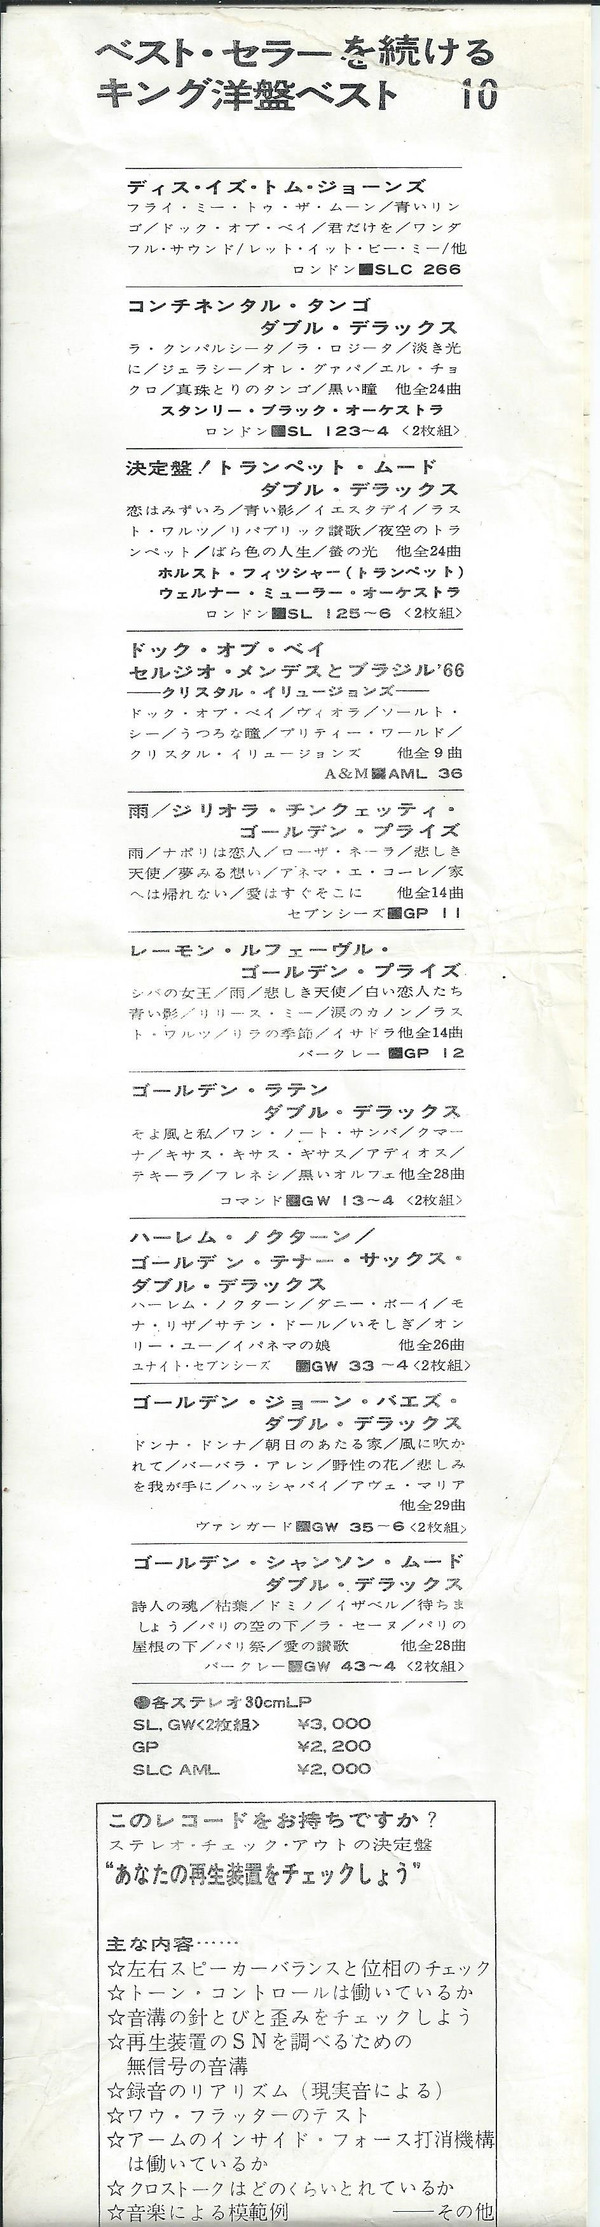 ベスト・セラーを続ける
キング洋盤ベスト 10
ディス・イズ・トム・ジョーンズ
フライ・ミー・トゥ・ザ・ムーン／青いリン
ゴ／ドック・オブ・ベイ／君だけを／ワンダ
フル・サウンド／レット・イット・ビー・ミー／他
ロンドン■SLC 266
コンチネンタル・タンゴ
ダブル・デラックス
ラ・クンパルシータ／ラ・ロジータ／淡き光
に／ジェラシー／オレ・グァパ／エル・チョ
クロ／真珠とりのタンゴ／黒い瞳 他全24曲
スタンリー・ブラック・オーケストラ
ロンドン■SL 123〜4 〈2枚組〉
決定盤！トランペット・ムード
ダブル・デラックス
恋はみずいろ／青い影／イエスタデイ／ラス
ト・ワルツ／リパブリック讃歌／夜空のトラ
ンペット／ばら色の人生／螢の光 他全24曲
ホルスト・フィッシャー（トランペット）
ウェルナー・ミューラー・オーケストラ
ロンドン■SL 125〜6 〈2枚組〉
ドック・オブ・ベイ
セルジオ・メンデスとブラジル'66
――クリスタル・イリュージョンズ――
ドック・オブ・ベイ／ヴィオラ／ソールト・
シー／うつろな瞳／プリティー・ワールド／
クリスタル・イリュージョンズ 他全9曲
A&M■AML 36
雨／ジリオラ・チンクェッティ・
ゴールデン・プライズ
雨／ナポリは恋人／ローザ・ネーラ／悲しき
天使／夢みる想い／アネマ・エ・コーレ／家
へは帰れない／愛はすぐそこに 他全14曲
セブンシーズ■GP 11
レーモン・ルフェーヴル・
ゴールデン・プライズ
シバの女王／雨／悲しき天使／白い恋人たち
青い影／リリース・ミー／涙のカノン／ラス
ト・ワルツ／リラの季節／イサドラ他全14曲
バークレー■GP 12
ゴールデン・ラテン
ダブル・デラックス
そよ風と私／ワン・ノート・サンバ／クマー
ナ／キサス・キサス・キサス／アディオス／
テキーラ／フレネシ／黒いオルフェ他全28曲
コマンド■GW 13〜4 〈2枚組〉
ハーレム・ノクターン／
ゴールデン・テナー・サックス・
ダブル・デラックス
ハーレム・ノクターン／ダニー・ボーイ／モ
ナ・リザ／サテン・ドール／いそしぎ／オン
リー・ユー／イパネマの娘 他全26曲
ユナイト・セブンシーズ ■GW 33〜4〈2枚組〉
ゴールデン・ジョーン・バエズ・
ダブル・デラックス
ドンナ・ドンナ／朝日のあたる家／風に吹か
れて／バーバラ・アレン／野性の花／悲しみ
を我が手に／ハッシャバイ／アヴェ・マリア
他全29曲
ヴァンガード■GW 35〜6〈2枚組〉
ゴールデン・シャンソン・ムード
ダブル・デラックス
詩人の魂／枯葉／ドミノ／イザベル／待ちま
しょう／パリの空の下／ラ・セーヌ／パリの
屋根の下／パリ祭／愛の讃歌 他全28曲
バークレー■GW 43〜4 〈2枚組〉
●各ステレオ30cmLP
SL, GW〈2枚組〉 ¥3,000
GP ¥2,200
SLC AML ¥2,000
このレコードをお持ちですか？
ステレオ・チェック・アウトの決定盤
“あなたの再生装置をチェックしょう”
主な内容……
☆左右スピーカーバランスと位相のチェック
☆トーン・コントロールは働いているか
☆音溝の針とびと歪みをチェックしよう
☆再生装置のSNを調べるための
無信号の音溝
☆録音のリアリズム（現実音による）
☆ワウ・フラッターのテスト
☆アームのインサイド・フォース打消機構
は働いているか
☆クロストークはどのくらいとれているか
☆音楽による模範例 ――その他